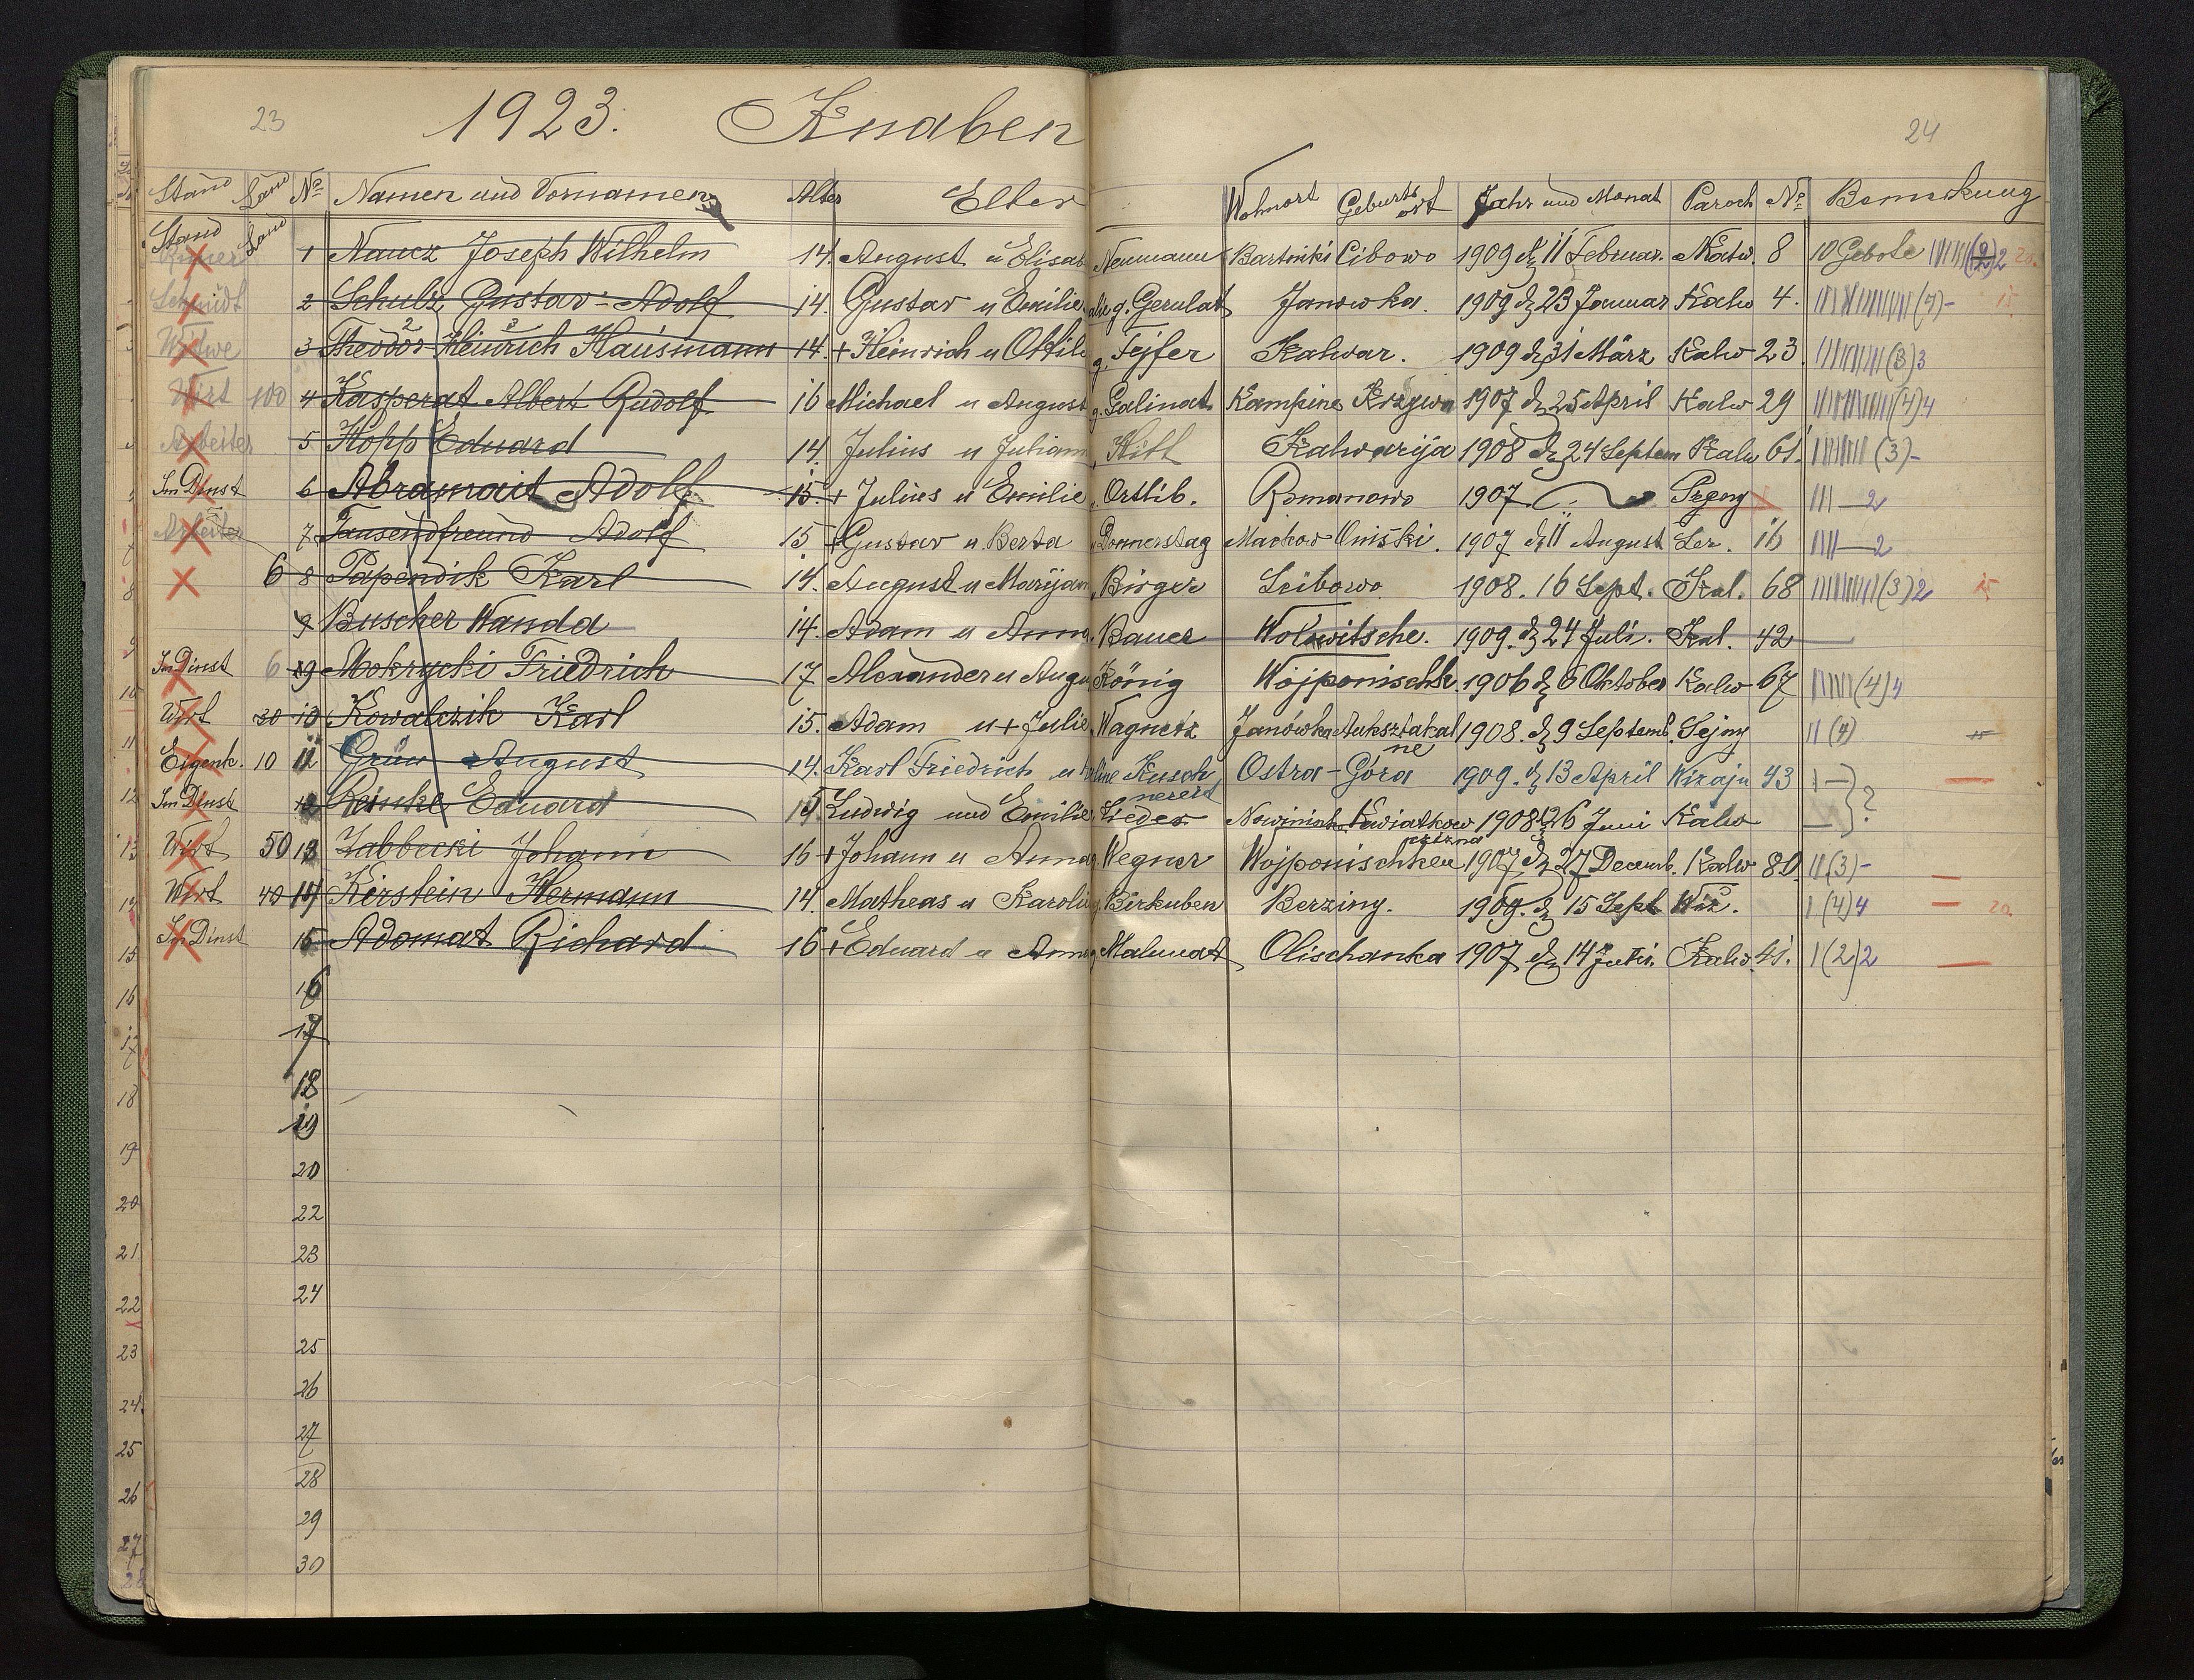 23
1923. Knaben
24
Stand Land No Namen und Vornamen Alter Elter Wohnort Geburtsort Jahr und Monat Paroch No Bemerkung
Stand Land
1 Naucz Joseph Wilhelm 14. August u Elisab Neumann Bartniki Cibowo 1909 d 11 Februar. Kalw. 8 10 Gebote (2) 2 20.
Schmidt 2 Schulz Gustav-Adolf 14. Gustav u Emilie g. Gerulat Janowka. 1909 d 23 Januar Kalw 4. (4)- 15
Witwe 3 Theodor Heinrich Hausmann 14. + Heinrich u Ottil g. Fejfer Kalwar. 1909 d 31 März Kalw 23. (3) 3
Wirt 100 4 Kasperat Albert Rudolf 16 Michael u August g. Galinat Kampine Krzywa 1907 d 25 April Kalw 29 (4) 4
Arbeiter 5 Hopp Eduard 14. Julius u Juliann Kalwarija 1908 d 24 Septem Kalw 61. (3)-
Im Dinst 6 Abramait Adolf 15 + Julius u Emilie Ortlib. Romanowo 1907 III — 2
Arbeiter 7 Tausendfreund Adolf 15 + Gustav u. Berta Donnerstag Mackow Oniški. 1907 d 11 August Ser. 16 IIII — 2
6 8 Papendik Karl 14. August u Marijan Birger Leibowo 1908. 16 Sept. Kal. 68 (3) 2 15
9 Buscher Wanda 14. Adam u Anna Bauer Wolwitsche. 1909. d 24 Juli. Kal. 42
Im Dinst 6 9 Mokrycki Friedrich 17. Alexander u Augu König Wojponischk. 1906 d 6 Oktober Kalw 67 (4) 4
Wirt 30 10 Kowalczik Karl 15. Adam u + Julie Wagnerz Janowka Auksztakal 1908. d 9 Septemb. Sejny II (4)
ne
Eigent. 10 11 Grün August 14. Karl Friedrich u Kusch Ostra-Góra 1909. d 13 April Wizaju 43
Im Dinst 12 Reinke Eduard 15 Ludwig und Emilie Nowinisch Kwiatkow 1908 d 26 Juni Kalw ?
Wirt 50 13 Zabbecki Johann 16 + Johann u Anna Wegner Wojponischken 1907. d 27 Decemb. Kalw 80. II (3)-
Wirt 40 14 Kirstein Hermann 14. Matheas u Karolin Birkuben Berziny. 1909. d 15 Sept Wiz. I (4) 4 20.
Im Dinst 15 Adomat Richard 16 + Eduard u Anna Malunat Olischanka 1907 d 14 Juli. Kalw. 41. I (2) 2
16
17
18
19
20
22
23
24
25
26
27
28
29
30